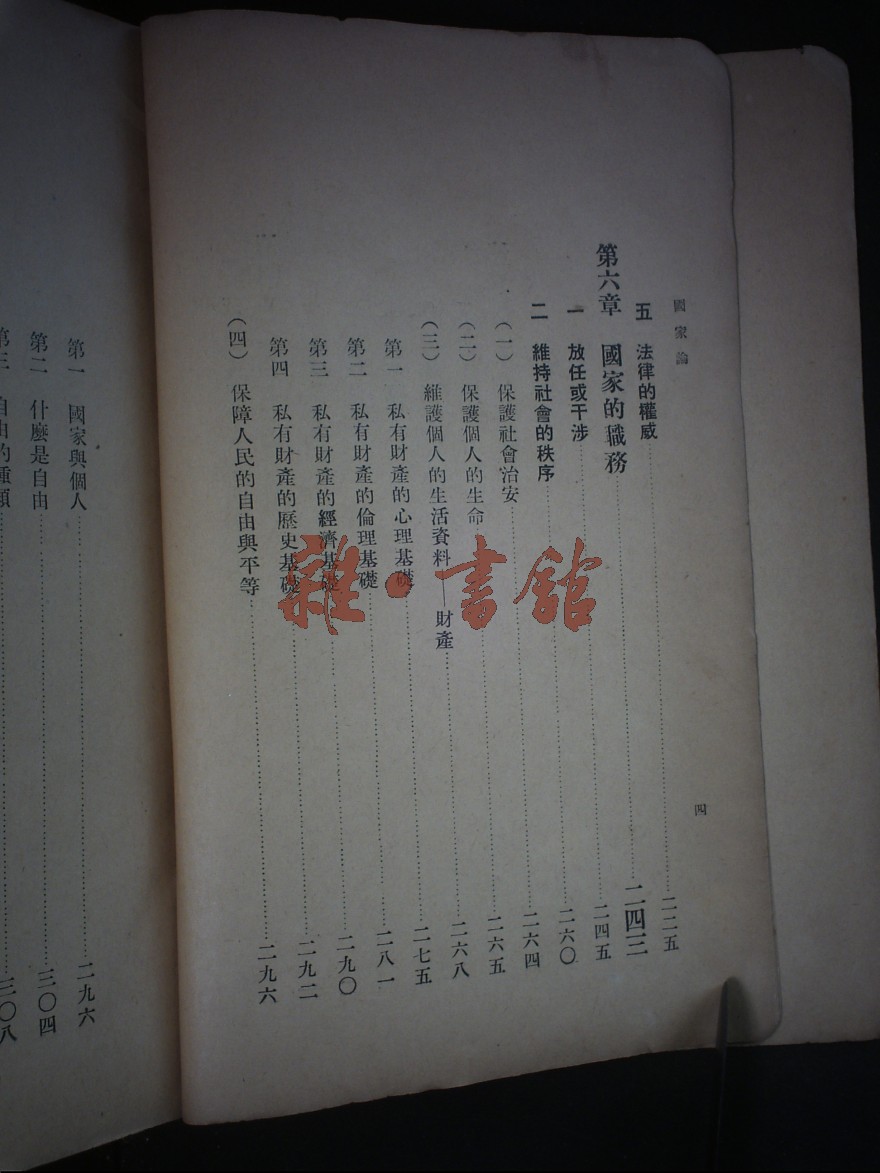 國家論
四
五 法律的權威……二二五
第六章 國家的職務……二四三
一 放任或干涉……二四五
二 維持社會的秩序……二六〇
（一） 保護社會治安……二六四
（二） 保護個人的生命……二六五
（三） 維護個人的生活資料——財產……二六八
第一 私有財產的心理基礎……二七五
第二 私有財產的倫理基礎……二八一
第三 私有財產的經濟基礎……二九〇
第四 私有財產的歷史基礎……二九二
（四） 保障人民的自由與平等……二九六
第一 國家與個人……二九六
第二 什麼是自由……三〇四
第三 自由的種類……三〇八
雜·書館